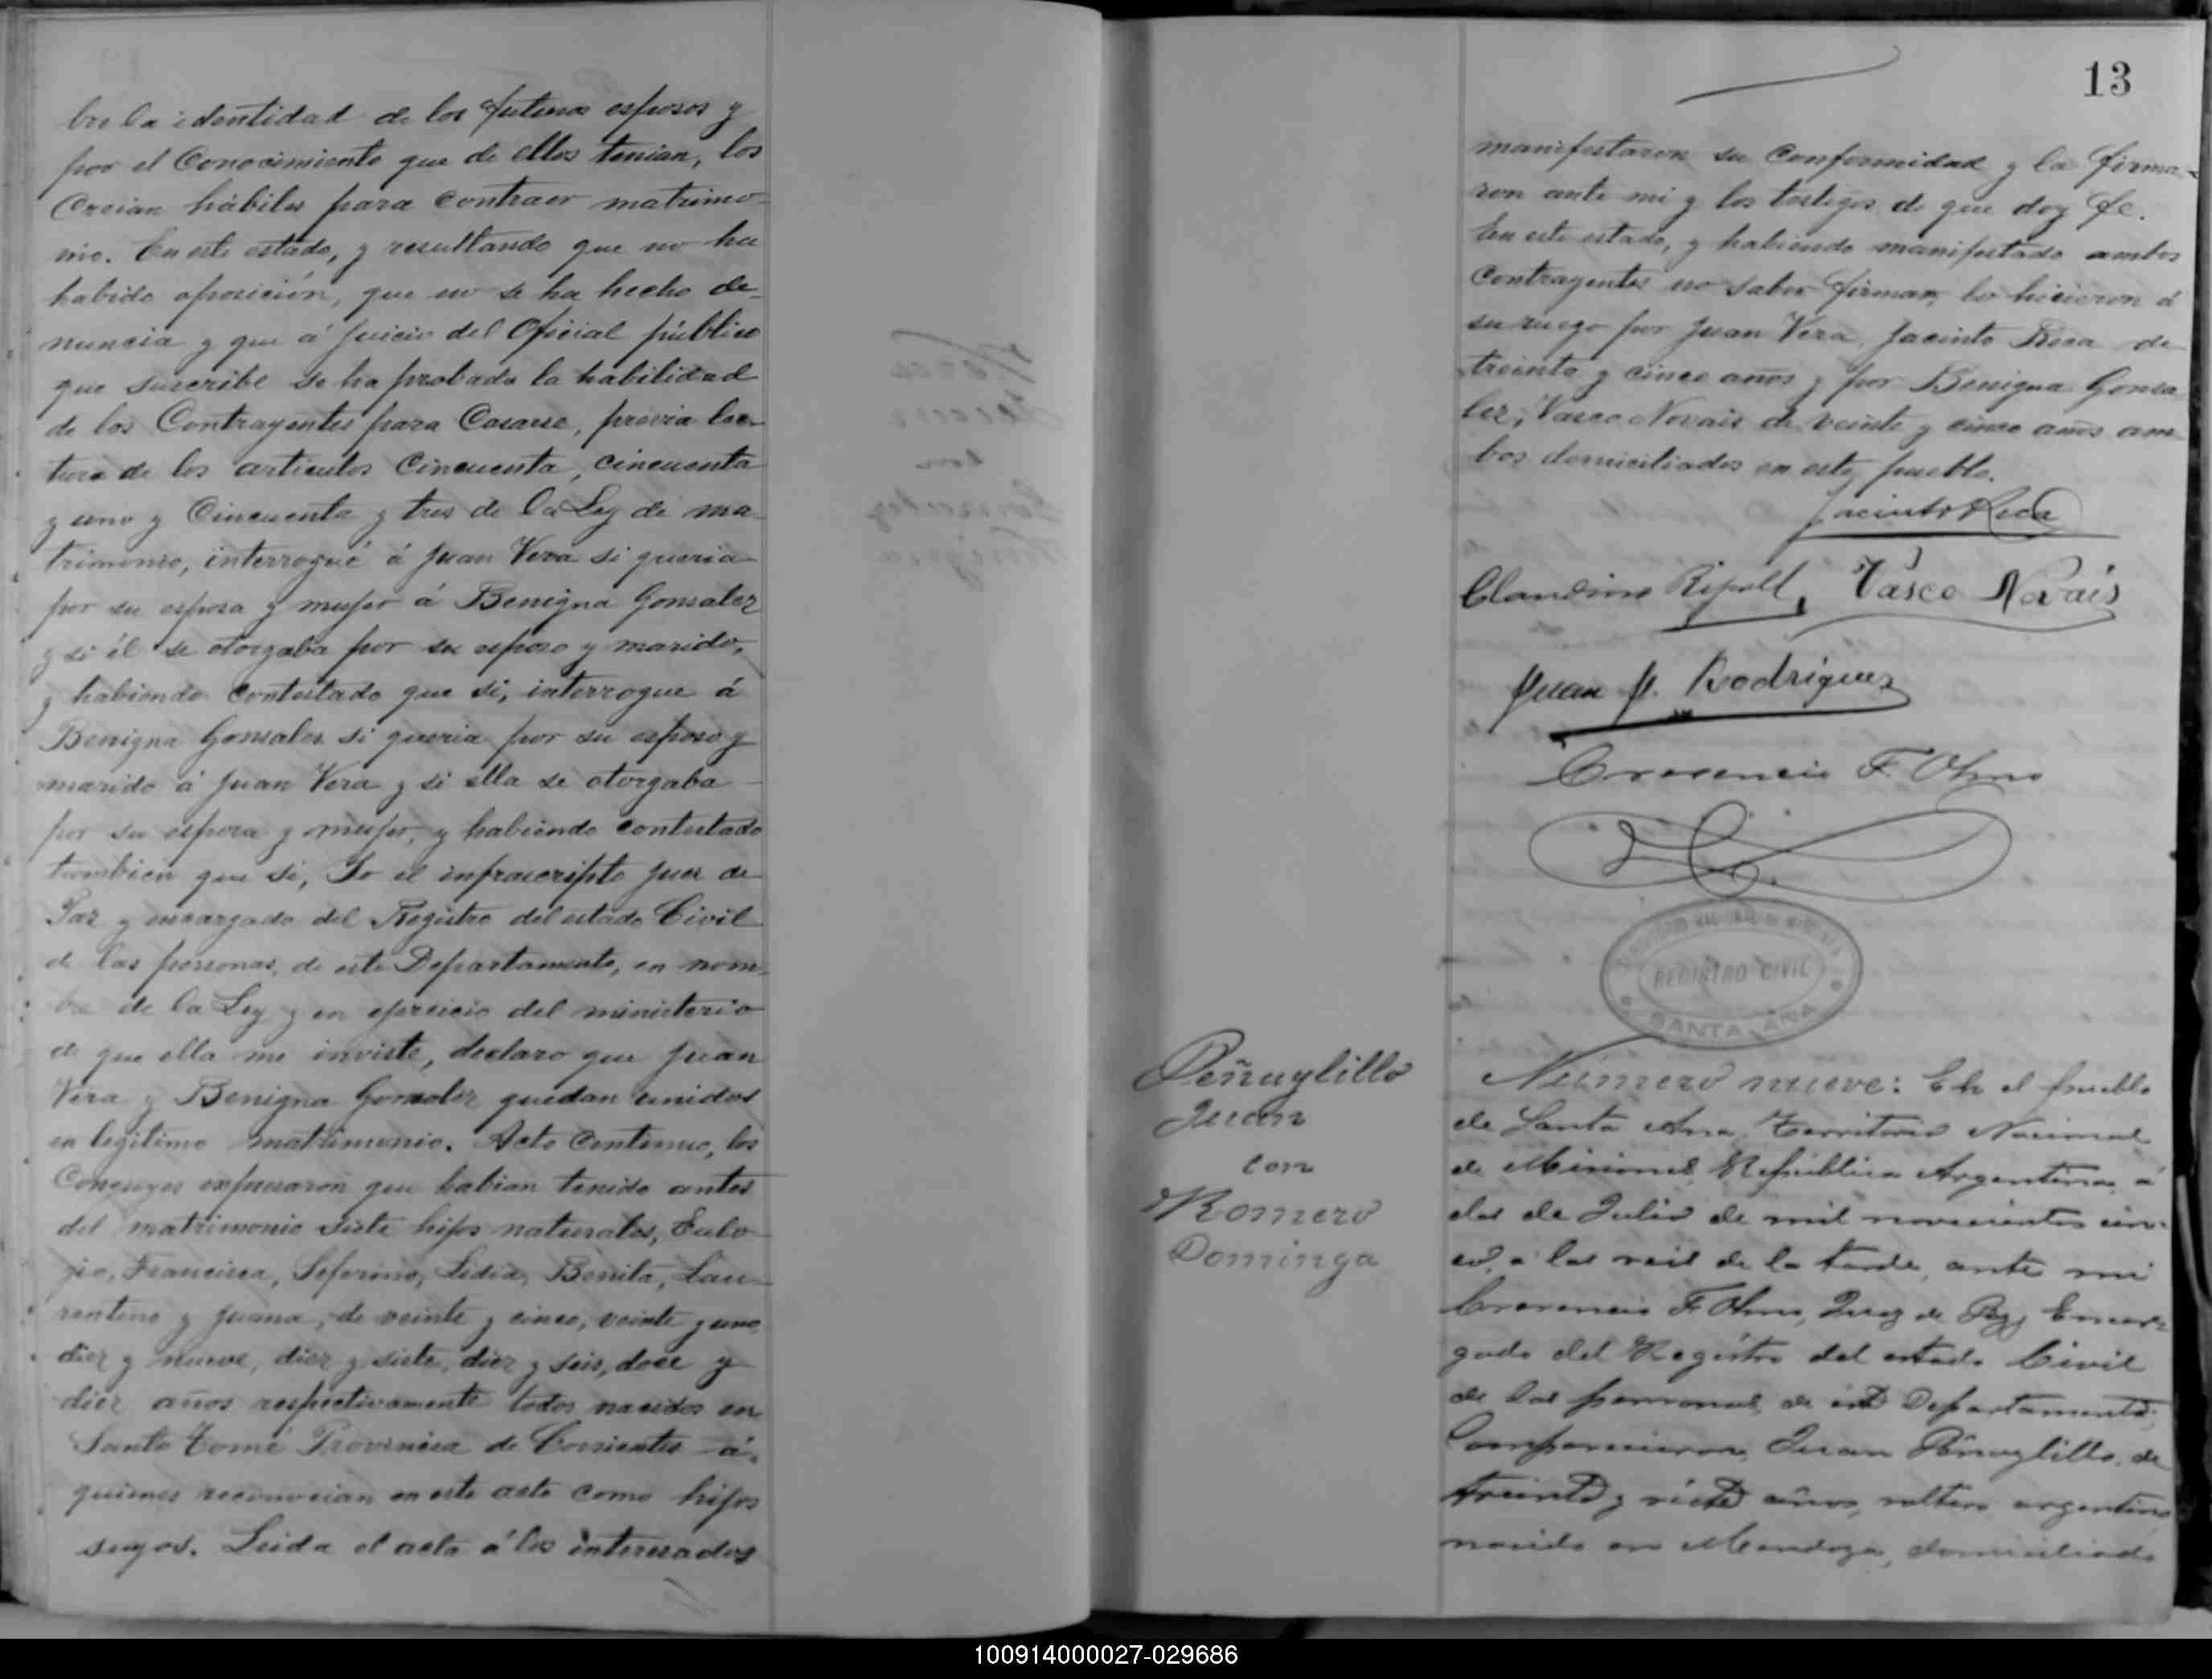 bre la identidad de los futuros esposos y
por el Conocimiento que de ellos tenian, los
Creian hábiles para contraer matrimo-
nio. En este estado, y resultando que no ha
habido oposición, que no se ha hecho de-
nuncia y que á juicio del Oficial público
que suscribe se ha probado la habilidad
de los Contrayentes para Casarse, prévia lec-
tura de los articulos Cincuenta, cincuenta
y uno y Cincuenta y tres de la Ley de ma-
trimonio, interrogué á Juan Vera si queria
por su esposa y mujer á Benigna Gonsalez
y si él se otorgaba por su esposo y marido,
y habiendo Contestado que si, interrogue á
Benigna Gonsalez si queria por su esposo y
marido á Juan Vera y si ella se otorgaba
por su esposa y mujer, y habiendo contestado
tambien que si, Yo el infrascripto Juez de
Paz y encargado del Registro del estado Civil
de las personas, de este Departamento, en nom-
bre de la Ley y en ejercicio del ministerio
de que ella me inviste, declaro que Juan
Vera y Benigna Gonsalez quedan unidos
en legitimo matrimonio. Acto Continuo, los
Conyuges expusaron que habian tenido antes
del matrimonio siete hijos naturales, Eulo-
jio, Francisca, Seferino, Lidia, Benita, Lau-
rentino y Juana, de veinte y cinco, veinte y uno,
diez y nueve, diez y siete, diez y seis, doce y
diez años respectivamente todos nacidos en
Santo Tomé Provincia de Corrientes á
quienes reconocian en este acto como hijos
suyos. Leida el acta á los interesados
13
manifestaron su Conformidad y la firma-
ron ante mi y los testigos de que doy fe.
En este estado, y habiendo manifestado ambos
Contrayentes no saber firmar, lo hicieron á
su ruego por Juan Vera, Jacinto Reca de
treinta y cinco años y por Benigna Gonsa
lez, Vasco Novais de veinte y cinco años am-
bos domiciliados en este pueblo.
Jacinto Reca
Claudino Ripoll, Vasco Novais
Juan J. Rodriguez
Crecencio F. Olmo
REGISTRO CIVIL
SANTA ANA
Peñuylillo
Juan
con
Romero
Dominga
Número nueve: En el pueblo
de Santa Ana, Territorio Nacional
de Misiones, República Argentina, á
dos de Julio de mil novecientos cin-
co, á las seis de la tarde, ante mi
Crecencio F. Olmo, Juez de Paz y Encar-
gado del Registro del estado Civil
de las personas, de este Departamento,
Comparecieron, Juan Peñuylillo, de
treinta y siete años, soltero, argentino
nacido en Mendoza, domiciliado
100914000027-029686